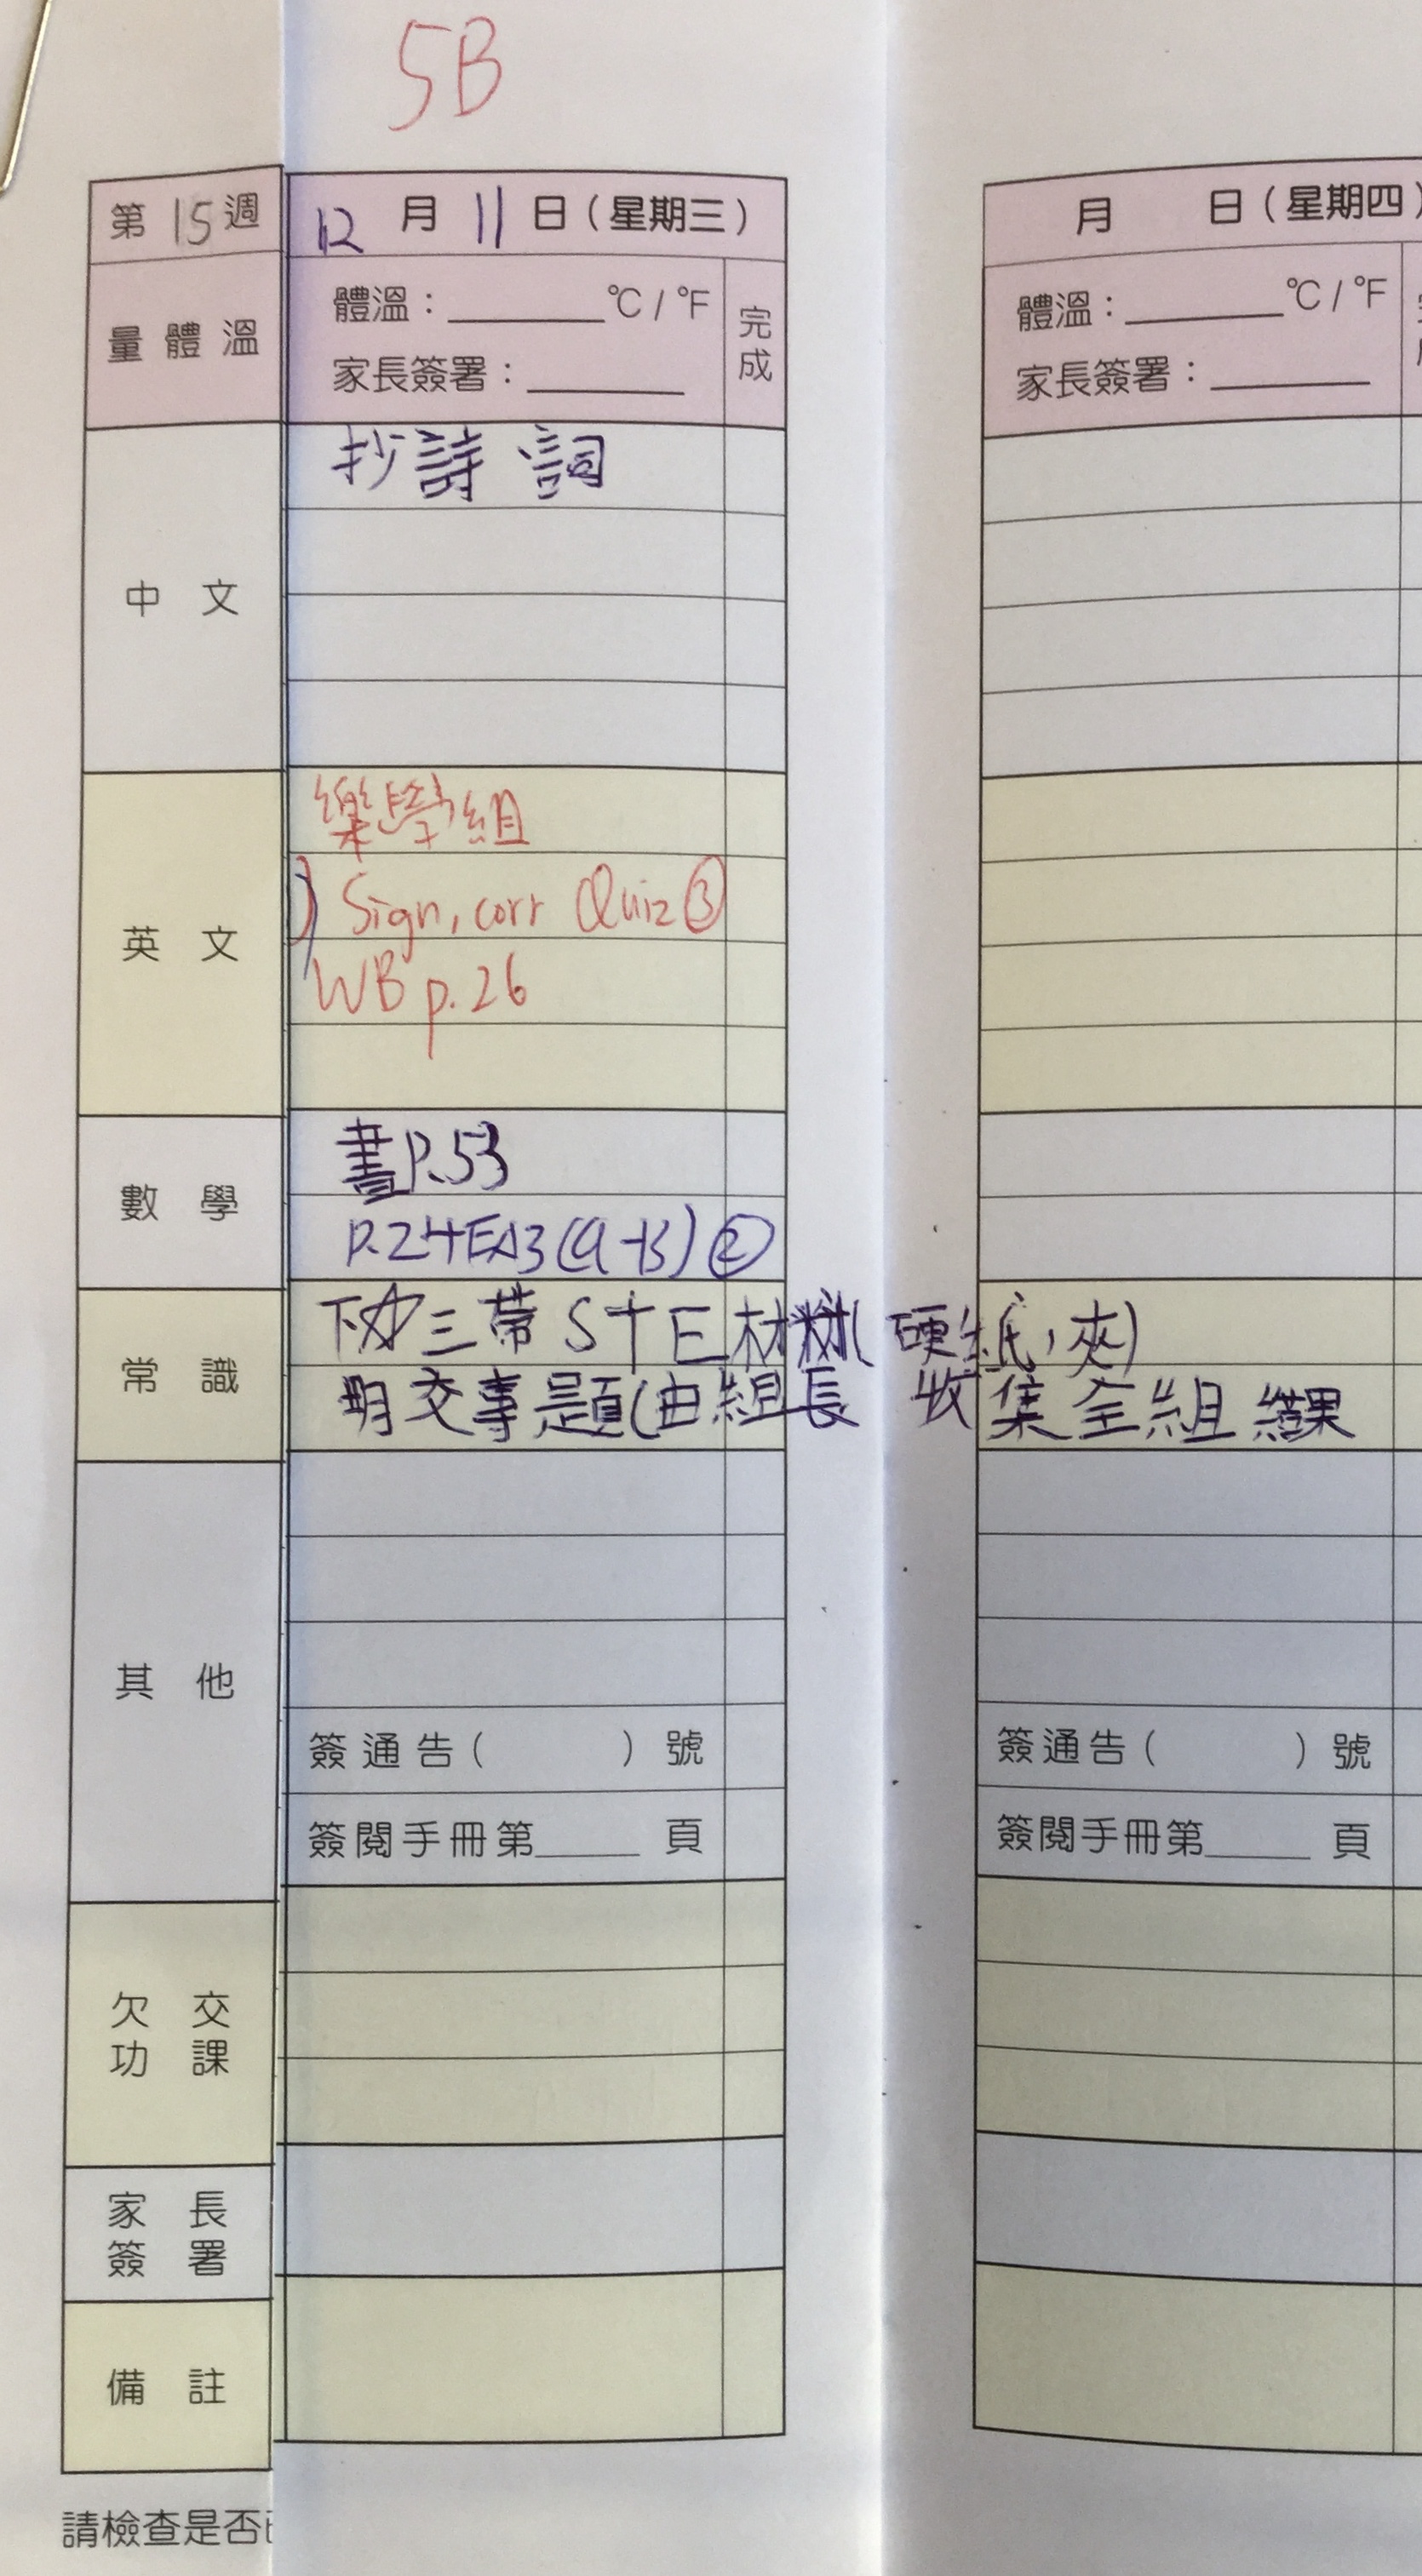 5B
第15週
12月11日（星期三）
月 日（星期四）
量體溫
體溫：______°C / °F
家長簽署：______
完成
體溫：______°C / °F
家長簽署：______
中文
抄詩詞
英文
樂學組
Sign, corr Quiz③
WB p.26
數學
書P.53
常識
三帶STE材料(硬紙,夾)
明交事題(由組長收集全組
其他
簽通告（ ）號
簽通告（ ）號
簽閱手冊第____頁
簽閱手冊第____頁
欠交功課
家長簽署
備註
請檢查是否